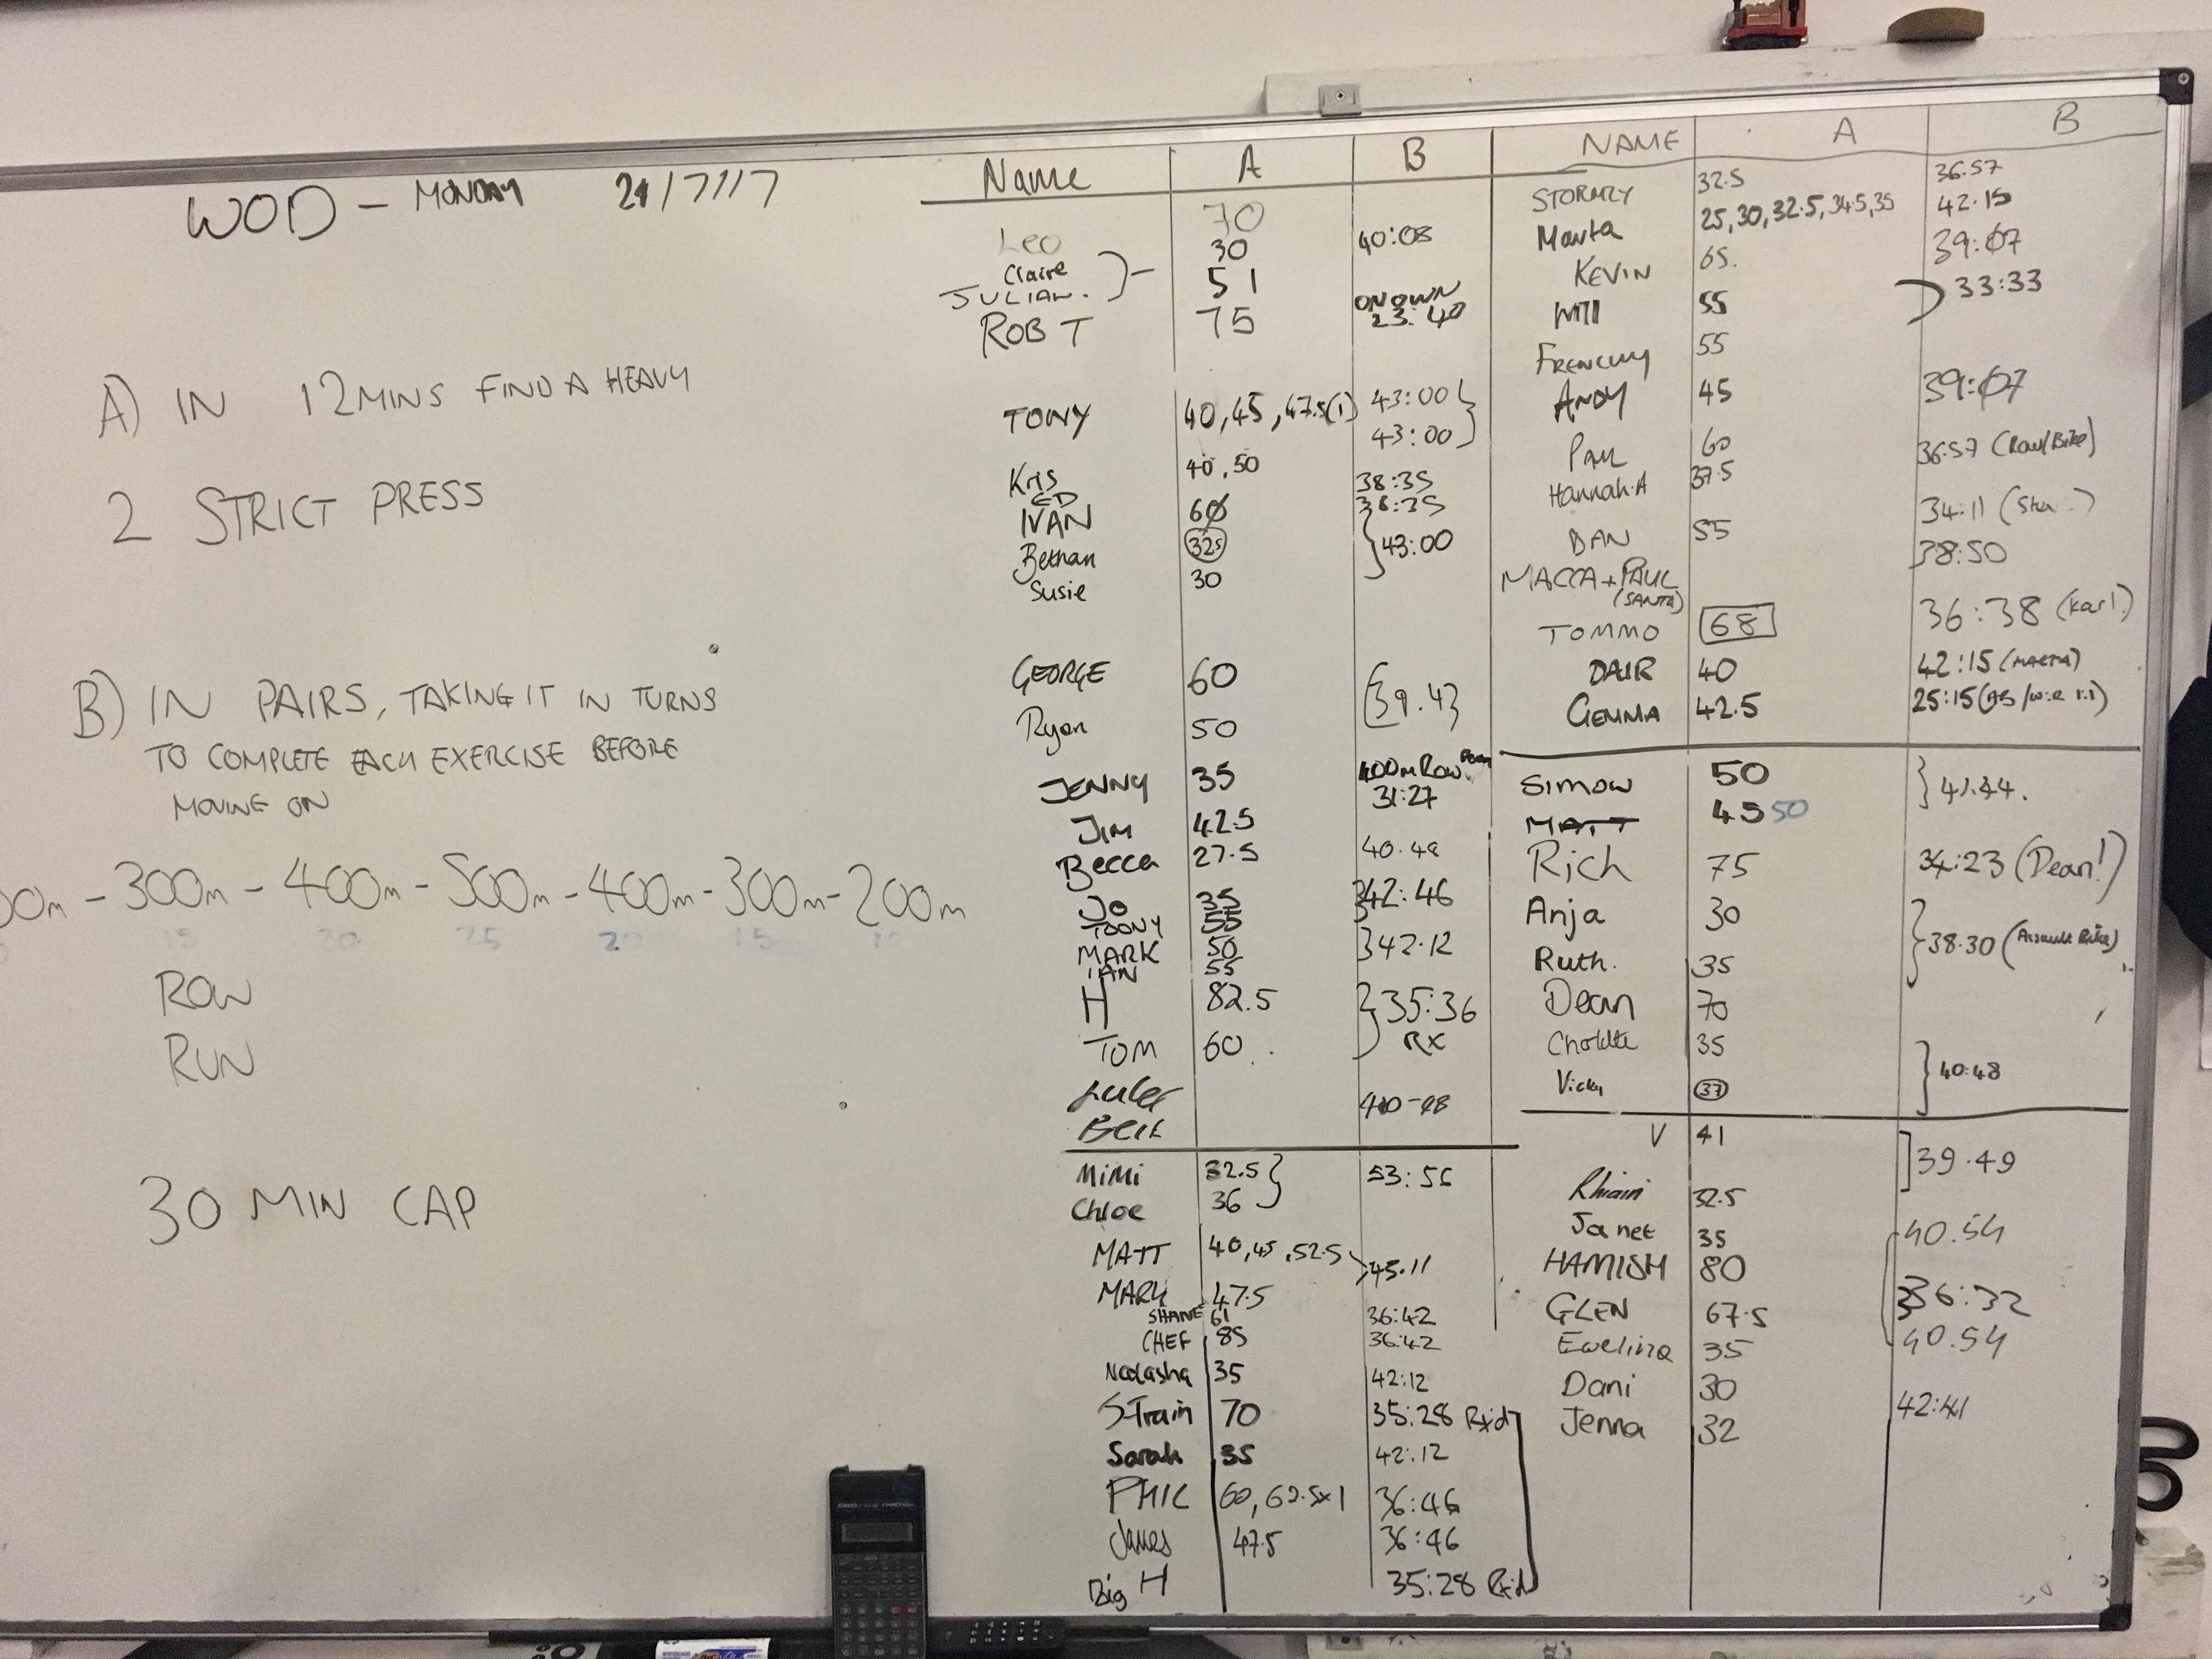 WOD - MONDAY 24/7/17
A) IN 12 MINS FIND A HEAVY
2 STRICT PRESS
B) IN PAIRS, TAKING IT IN TURNS
TO COMPLETE EACH EXERCISE BEFORE
MOVING ON
00m - 300m - 400m - 500m - 400m - 300m - 200m
15 20 25 20 15
ROW
RUN
30 MIN CAP
Name A B
Leo 70
Claire 30 40:08
JULIAN. 51
ROB T 75 ON OWN 23:40
TONY 40, 45, 47.5(1) 43:00
43:00
Kris 40, 50
ED 38:35
IVAN 60 38:35
Bethan 32.5 43:00
Susie 30
GEORGE 60 39.43
Ryan 50
JENNY 35 400m Row
31:27
JIM 42.5
Becca 27.5 40.48
JO 35 42:46
TOONY 55
MARK 50 42.12
IAN 55
H 82.5 35:36
TOM 60 RX
Luke 40-48
MiMi 32.5 53:56
Chloe 36
MATT 40, 45, 52.5 45.11
MARK 47.5
SHANE 61 36:42
CHEF 85 36:42
Natasha 35 42:12
S-Train 70 35:28 Rx'd
Sarah 35 42:12
PHIL 60, 62.5x1 36:46
James 47.5 36:46
Big H 35:28 Rx'd
NAME A B
STORMZY 32.5 36:57
Marta 25, 30, 32.5, 34.5, 35 42.15
KEVIN 65. 39:07
Will 55 33:33
FRENCHY 55
ANDY 45 39:07
PAUL 60 36:57 (Row/Bike)
Hannah.A 37.5
DAN 55 34:11
MACCA + PAUL 38:50
(SANTA)
TOMMO 68 36:38 (Karl)
DAIR 40 42:15 (MARTA)
GEMMA 42.5 25:15
SIMON 50 41:44.
MATT 45 50
Rich 75 34:23 (Dean!)
Anja 30
Ruth. 35 38.30 (Assault Bike)
Dean 70
35
Vicky 37 40:48
V 41 39.49
Rhian 32.5
Janet 35 40.54
HAMISH 80
GLEN 67.5 36:32
Ewelina 35 40.54
Dani 30
Jenna 32 42:41